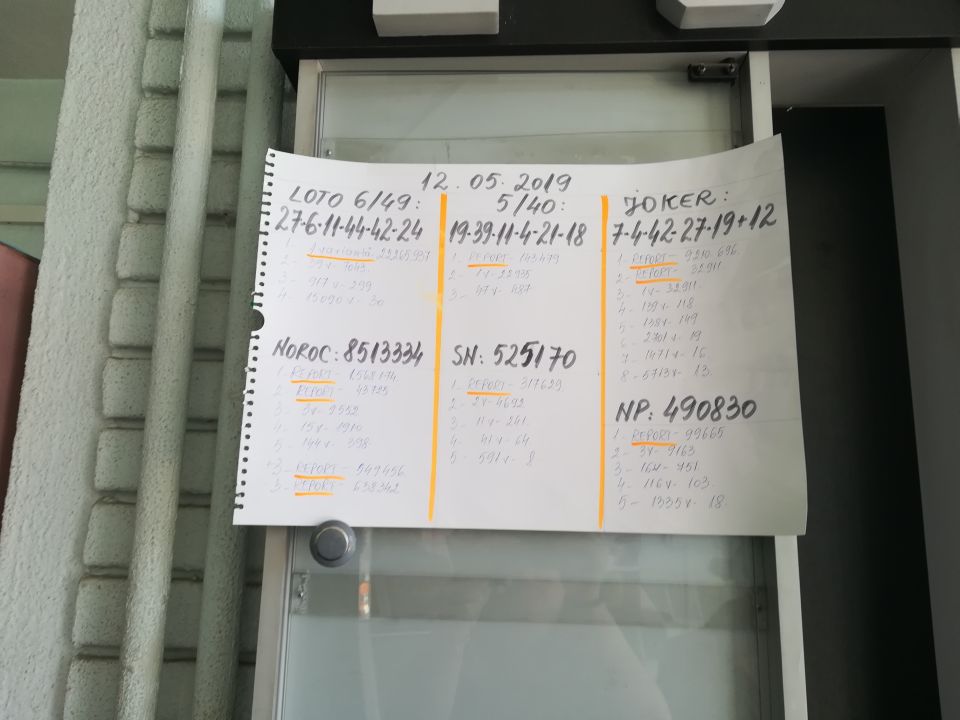 12.05.2019
LOTO 6/49:
27-6-11-44-42-24
1-
1 variantă 22265937
2- 39v- 7043
3- 917v- 299
4- 15090v- 30
NOROC: 8513334
1- REPORT- 1568174
2- REPORT- 43725
3- 3v- 9552
4- 15v- 1910
5- 144v- 398
+3- REPORT- 549456
-3- REPORT- 638342
5/40:
19-39-11-4-21-18
1- REPORT- 143479
2- 1v- 22935
3- 47v- 487
SN: 525170
1- REPORT- 317629
2- 2v- 4692
3- 11v- 241
4- 41v- 64
5- 591v- 8
JOKER:
7-4-42-27-19+12
1- REPORT- 9210696
2- REPORT- 32911
3- 1v- 32911
4- 139v- 118
5- 138v- 149
6- 2701v- 19
7- 1471v- 16
8- 5713v- 13
NP: 490830
1- REPORT- 99665
2- 3v- 9163
3- 16v- 751
4- 116v- 103
5- 1335v- 18